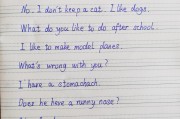 No. I don't keep a cat. I like dogs.
What do you like to do after school.
I like to make model planes.
What's wrong with you?
I have a stomachach.
Does he have a runny nose?